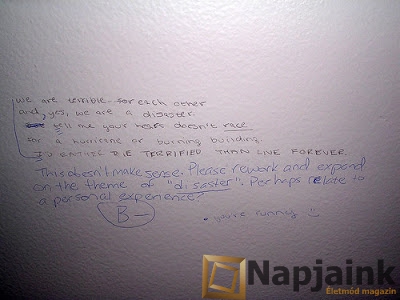 we are terrible for each other
and, yes, we are a disaster.
tell me your heart doesn't race
for a hurricane or burning building.
I'D RATHER DIE TERRIFIED THAN LIVE FOREVER.
This doesn't make sense. Please rework and expand
on the theme of "disaster". Perhaps relate to
a personal experience?
B-
you're funny :)
Napjaink
Életmód magazin